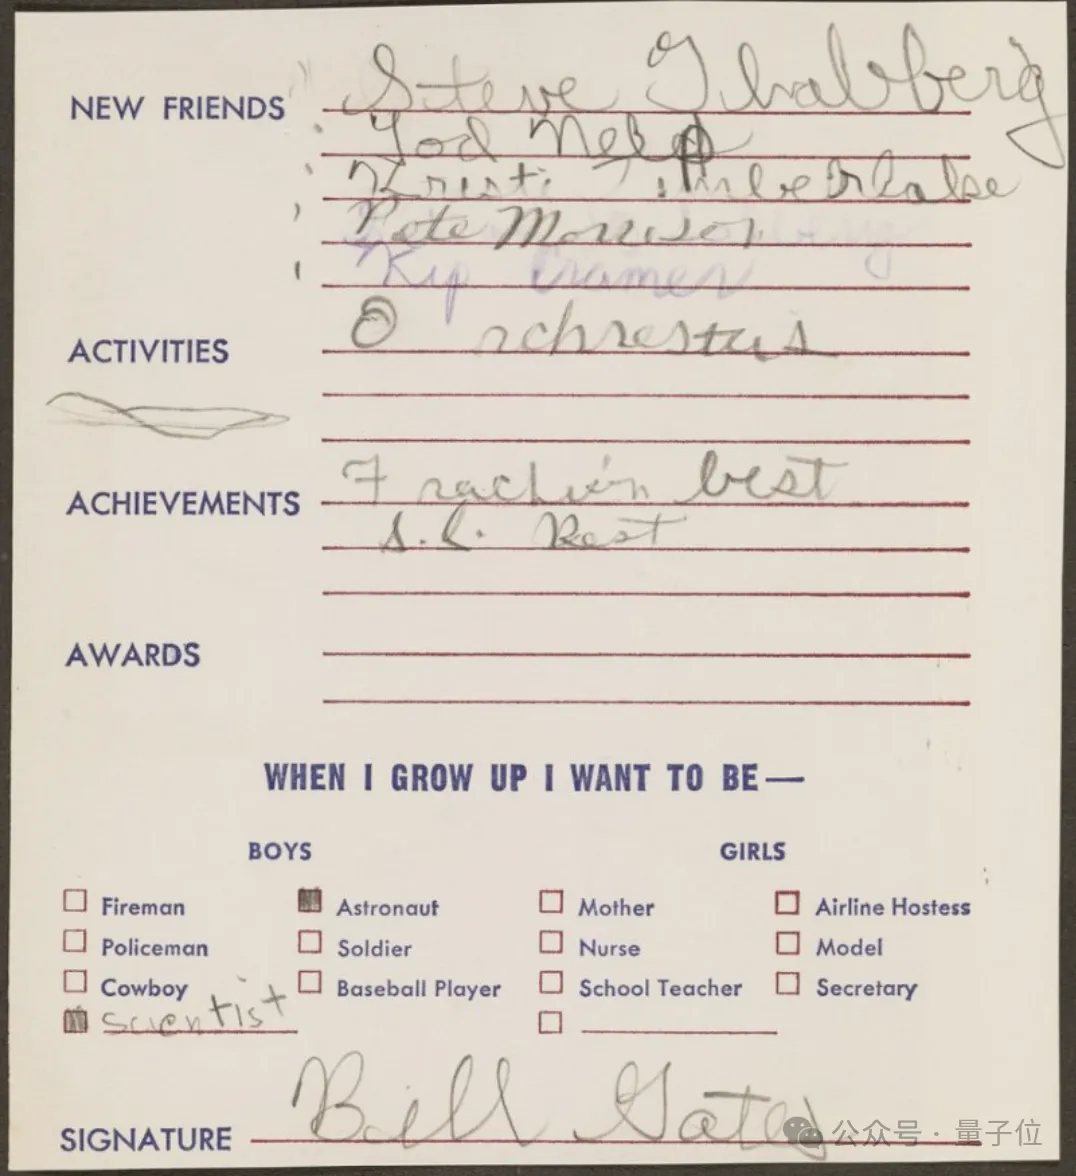 NEW FRIENDS Steve
Kristi Timberlake
Pete Morrison
Kip Cramer
ACTIVITIES
ACHIEVEMENTS best
AWARDS
WHEN I GROW UP I WANT TO BE—
BOYS GIRLS
Fireman Astronaut Mother Airline Hostess
Policeman Soldier Nurse Model
Cowboy Baseball Player School Teacher Secretary
scientist
SIGNATURE Bill Gates
公众号·量子位